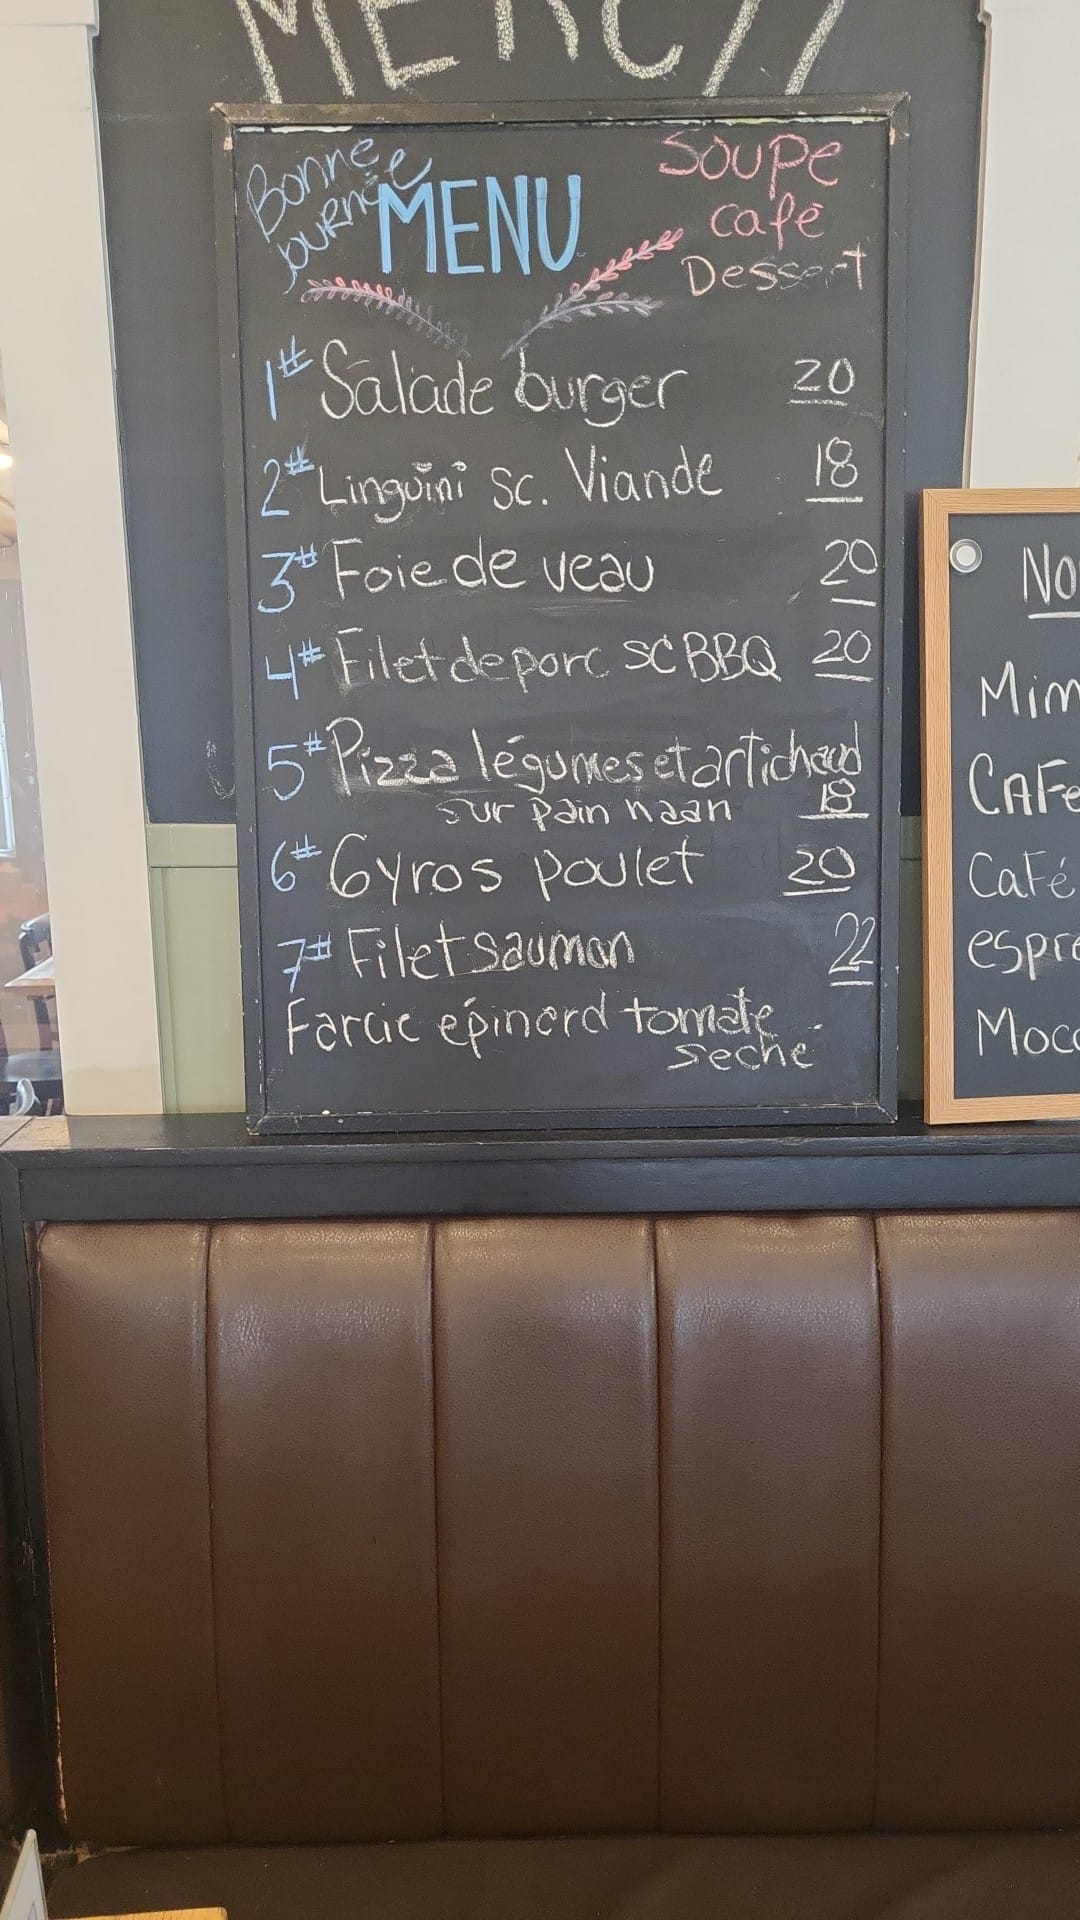 MERCI
Bonne
journée
MENU
Soupe
café
Dessert
1# Salade burger 20
2# Linguini sc. Viande 18
3# Foie de veau 20
4# Filet de porc SC BBQ 20
5# Pizza légumes et artichaud
sur pain naan 18
6# Gyros poulet 20
7# Filet saumon 22
Farcie épinard tomate
seché
Café
espre